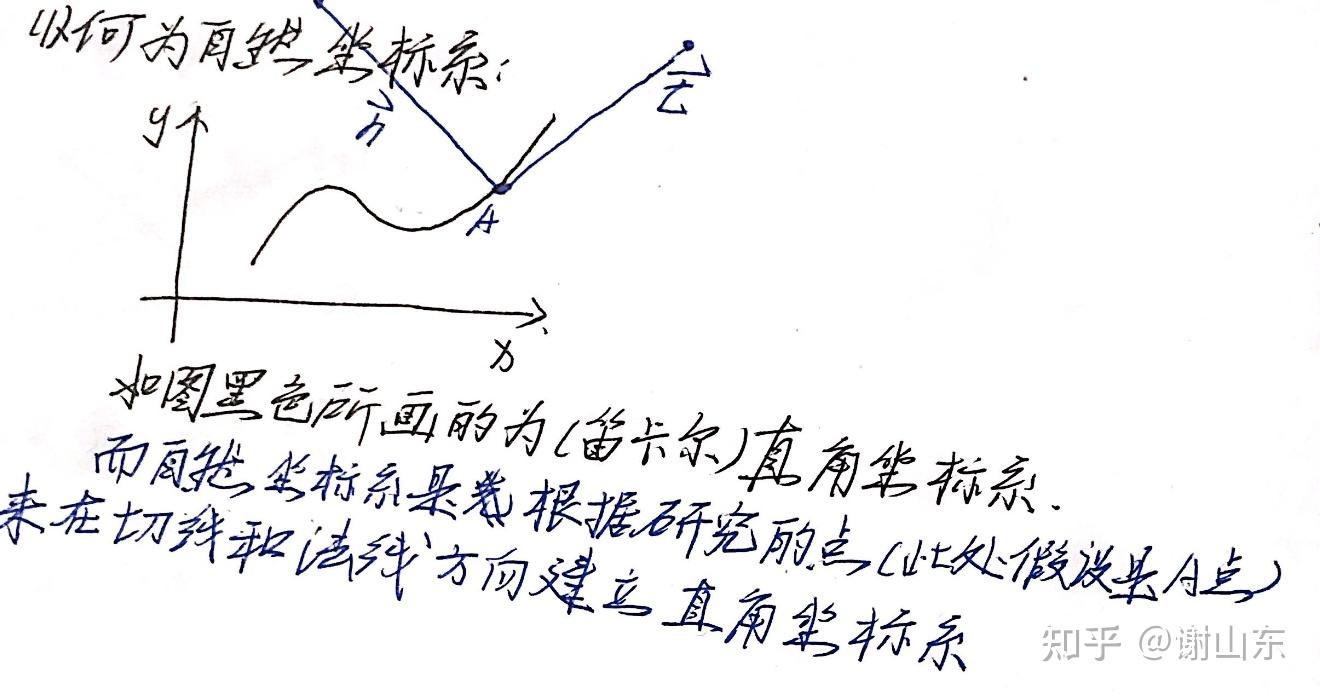 (1)何为自然坐标系:
n
t
y
A
x
如图黑色所画的为(笛卡尔)直角坐标系.
而自然坐标系是根据研究的点(此处假设是A点)
来在切线和法线方向建立直角坐标系
知乎 @谢山东